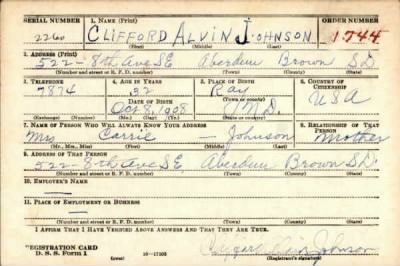 SERIAL NUMBER 1. NAME (Print) ORDER NUMBER
2260 CLIFFORD ALVIN JOHNSON 1744
(First) (Middle) (Last)
2. ADDRESS (Print)
522 - 8th Ave SE Aberdeen Brown S.D.
(Number and street or R. F. D. number) (Town) (County) (State)
3. TELEPHONE 4. AGE IN YEARS 5. PLACE OF BIRTH 6. COUNTRY OF CITIZENSHIP
7874 32 Ray USA
DATE OF BIRTH (Town or county)
Oct 8, 1908 N.D.
(Exchange) (Number) (Mo.) (Day) (Yr.) (State or country)
7. NAME OF PERSON WHO WILL ALWAYS KNOW YOUR ADDRESS 8. RELATIONSHIP OF THAT PERSON
Mrs Carrie — Johnson Mother
(Mr., Mrs., Miss) (First) (Middle) (Last)
9. ADDRESS OF THAT PERSON
522 - 8th Ave SE Aberdeen Brown S.D.
(Number and street or R. F. D. number) (Town) (County) (State)
10. EMPLOYER'S NAME
—
11. PLACE OF EMPLOYMENT OR BUSINESS
—
(Number and street or R. F. D. number) (Town) (County) (State)
I AFFIRM THAT I HAVE VERIFIED ABOVE ANSWERS AND THAT THEY ARE TRUE.
REGISTRATION CARD
D. S. S. Form 1 (over) 16—17105 Johnson
(Registrant's signature)